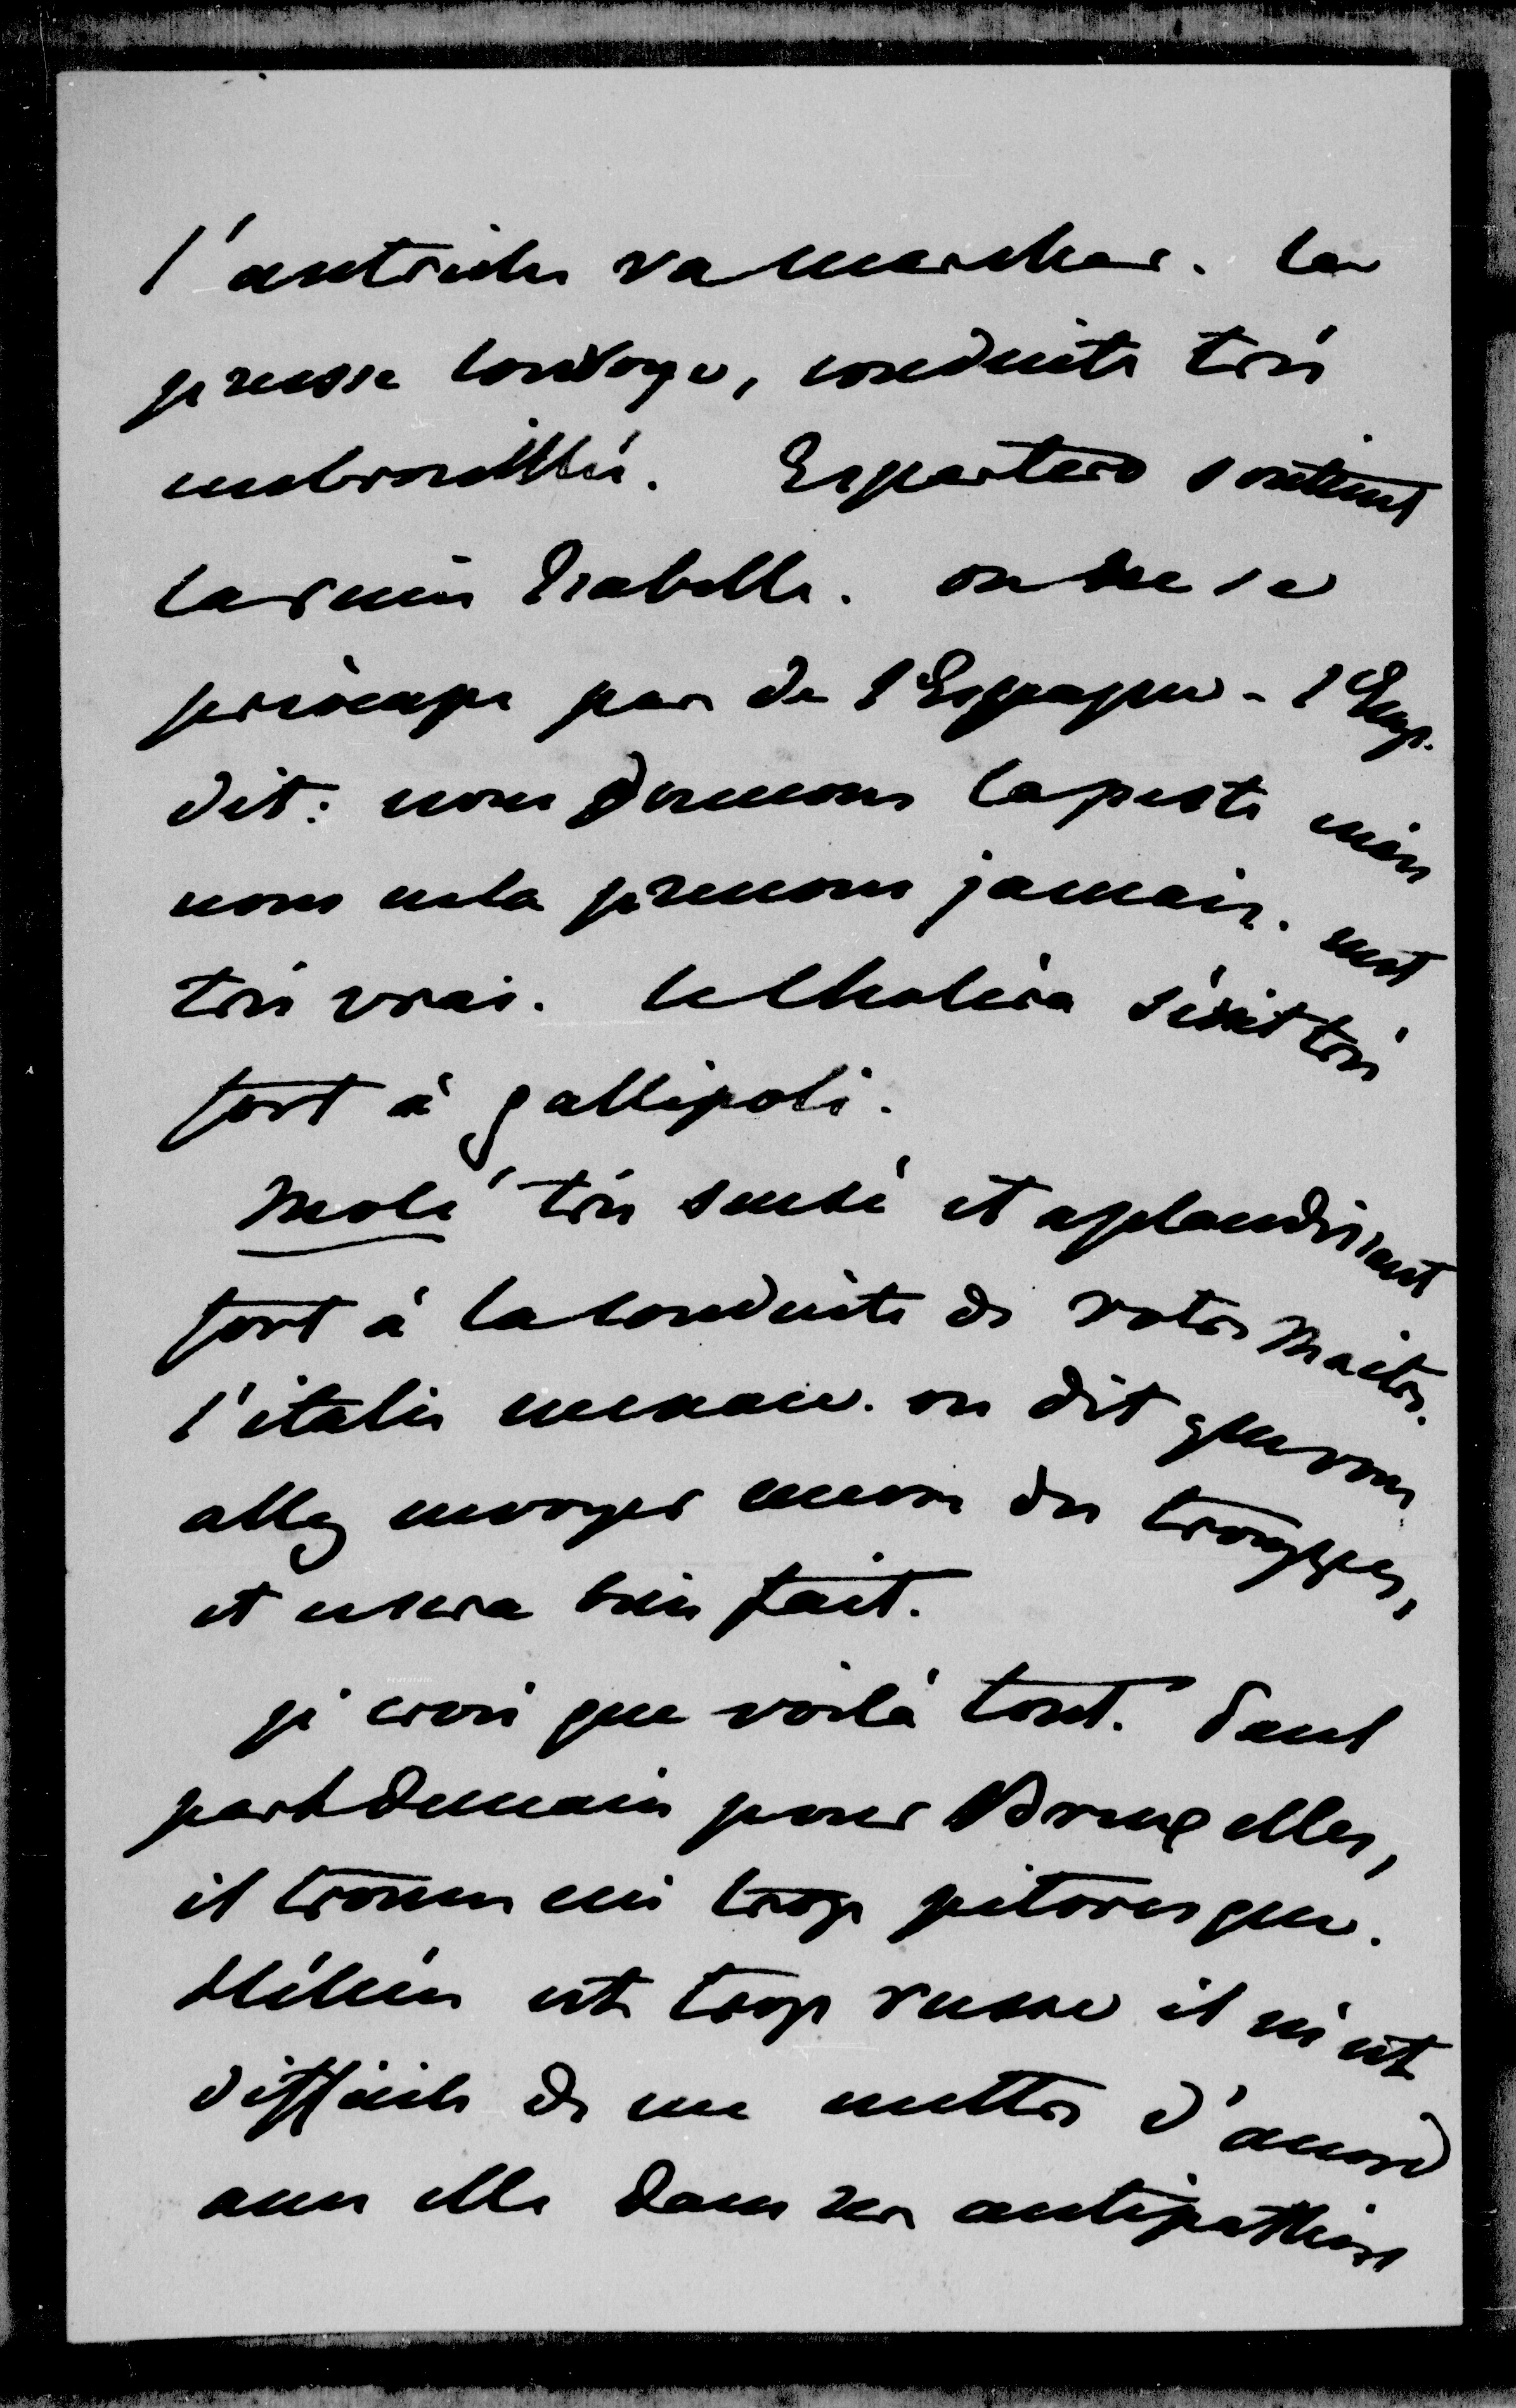 l'autriche va marcher. la
prusse louvoye, conduite très
embrouillée. Espartero soutient
la reine Isabelle. on ne se
préocupe pas de l'Espagne - l'Emp.
dit : nous donnons la peste mais
nous ne la prenons jamais. mot
très vrai. le Choléra sévit très
fort à gallipoli.
Molé très sensé et aplaudissant
fort à la conduite de votre Maitre.
l'italie menace. on dit que vous
allez envoyer encore des trouppes,
et ce sera bien fait.
je crois que voilà tout. Paul
part demain pour Bruxelles,
il trouve ceci trop pitoresque.
Hélène est trop russe il m'est
difficile de me mettre d'accord
avec elle dans ses antipathies